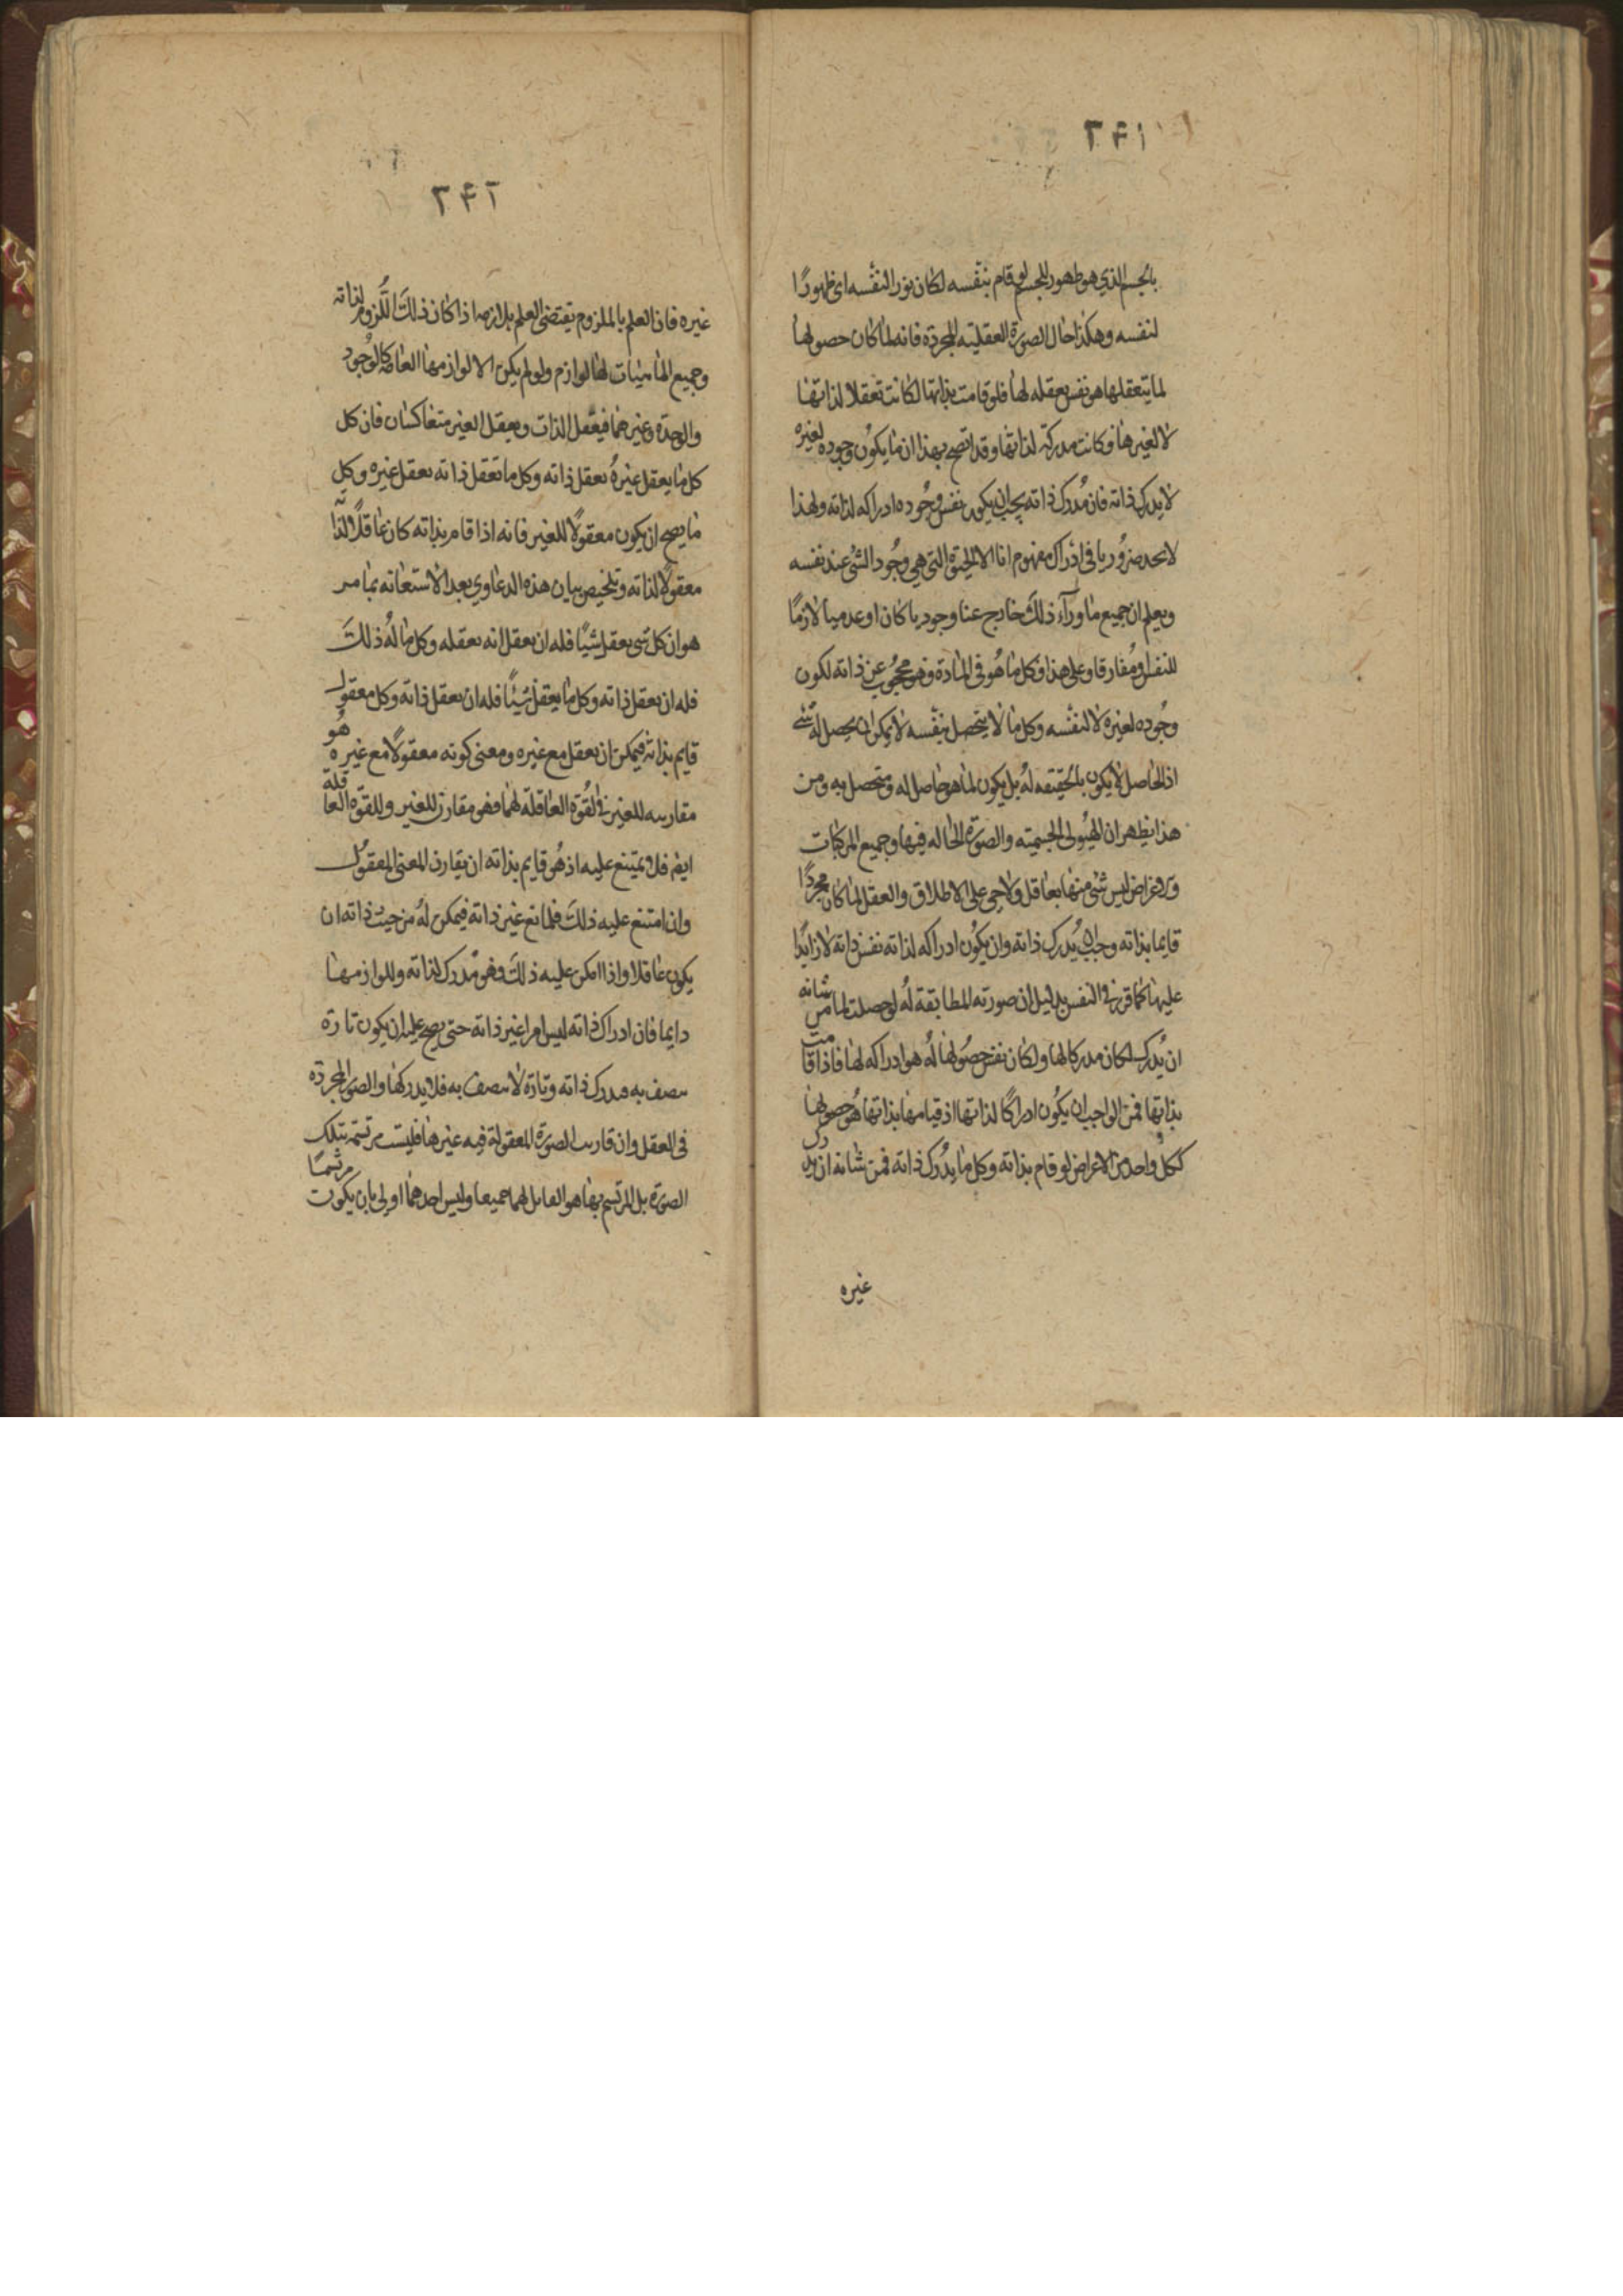 ٢٤١
بالجسم الذي هو ظهور للجسم لو قام بنفسه لكان نورا لنفسه اى ظهورًا
لنفسه وهكذا حال الصورة العقلية المجردة فانه لما كان حصولها
لما يتعقلها هو نفس تعقله لها فلو قامت بذاتها لكانت تعقلا لذاتها
لا لغيرها وكانت مدركة لذاتها وقد اتضح بهذا ان ما يكون وجوده لغيره
لا يدرك ذاته فان مُدرك ذاته يجب ان يكون نفس وجُوده ادراكه لذاته ولهذا
لا نجد ضرُوريا في ادراك مفهوم انا الا الحيوة التي هي وجُود الشي عند نفسه
ويعلم ان جميع ما وراء ذلك خارج عنا وجوديا كان او عدميا لازمًا
للنفس او مُفارقا وعلى هذا فكل ما هُو في المادة فهو محجُوب عن ذاته لكون
وجُوده لغيره لا لنفسه وكل ما لا يتحصل بنفسه لا يمكن ان يحصل له شي
اذ الحاصل لا يكون بالحقيقه لهُ بل يكون لما هو حاصل له ومتحصل به ومن
هذا يظهر ان الهيُولى الجسميته والصورة الحاله فيها وجميع المركبات
والاعراض ليس شئ منها بعاقل ولا حي على الاطلاق والعقل لما كان مجردًا
قايما بذاته وجب ان يُدرك ذاته وان يكوُن ادراكه لذاته نفس ذاته لا زايدًا
عليها كما قرر في النفس بدليل ان صورته المطابقة لهُ لو حصلت لما من شانه
ان يُدرك لكان مدركا لها ولكان نفس حصُولها لهُ هو ادراكه لها فاذا قامت
بذاتها فمن الواجب ان يكوُن ادراكًا لذاتها اذ قيامها بذاتها هُو حصولها
ككل واحد من الاعراض لو قام بذاته وكل ما يدُرك ذاته فمن شانه ان يدرك
غيره
٢٤٢
غيره فان العلم بالملزوم يقتضى العلم بلازمه اذا كان ذلك اللُّزوم لذاته
وجميع الماهيات لها لوازم ولو لم يكن الا لوازمها العامة كالوُجود
والوحدة وغيرهما فيعقل الذات وبعقل الغير متعاكسان فان كل
كل ما يعقل غيرهُ يعقل ذاته وكل ما تعقل ذاته يعقل غيره وكل
ما يصح ان يكون معقولًا للغير فانه اذا قام بذاته كان عاقلًا لذاته
معقولًا لذاته وتلخيص بيان هذه الدعاوي بعد الاستعانه بما مر
هو ان كل شي يعقل شيًا فله ان يعقل انه يعقله وكل ما لهُ ذلك
فله ان يعقل ذاته وكل ما يعقل شيئًا فله ان يعقل ذاته وكل معقول
قايم بذاته فيمكن ان يعقل مع غيره ومعنى كونه معقولًا مع غيره هُو
مقارنته للغير في القُوة العاقلة لهما فهو مقارن للغير وللقوّه العاقلة
ايضا فلا يمتنع عليه اذ هُو قايم بذاته ان يقارن المعنى المعقول
وان امتنع عليه ذلك فلمانع غير ذاته فيمكن لهُ من حيث ذاته ان
يكون عاقلا واذا امكن عليه ذلك فهو مُدرك لذاته وللوازمها
دايما فان ادراك ذاته ليس امرا غير ذاته حتى يصح عليه ان يكون تارة
متصف به مدرك ذاته وتارة لا متصف به فلا يدركها والصور المجردة
في العقل وان قارنت الصورة المعقولة فيه غيرها فليست مرتسمة بتلك
الصورة بل المرتسم بها هو القابل لهما جميعا وليس احدهما اولى بان يكون مرتسمًا